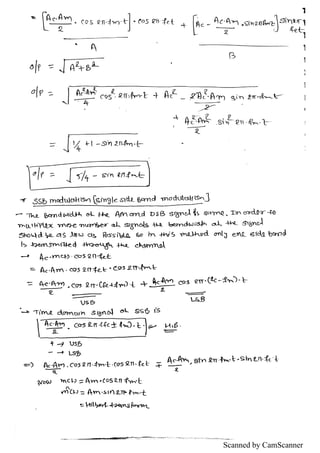 = [Ac·Am/2 · cos 2π·fm·t] · cos 2π·fct + [Ac - Ac·Am/2 · sin2πfmt] sin2πfct
A
B
o/p = √A²+B²
o/p = √Ac²Am²/4 cos² 2π·fm·t + Ac² - 2Ac²·Am/2 sin 2π·fm·t
+ Ac²·Am²/2 · sin² 2π·fm·t
= √¼ + 1 - sin 2πfm·t
o/p = √5/4 - sin 2πfmt
* SSB modulation [single side band modulation]
- The bandwidth of the AM and DSB signal is same. In order to
multiplex more number of signals the bandwidth of the signal
should be as low as possible so in this method only one side band
is transmitted through the channel
→ Ac·m(t)·cos 2π·fct
= Ac·Am·cos 2π fct · cos 2π·fmt
= Ac·Am/2 · cos 2π·(fc+fm)·t + Ac·Am/2 cos 2π·(fc-fm)·t
USB
LSB
→ Time domain signal of SSB is
[Ac·Am/2 · cos 2π (fc ± fm)·t]
+ → USB
- → LSB
=) Ac·Am/2 · cos 2π·fm·t · cos 2π·fc·t ∓ Ac·Am/2 · sin 2π fm·t · sin 2π·fc t
Now m(t) = Am·cos 2π fm·t
m̂(t) = Am·sin 2π fm·t
= Hilbert transform
Scanned by CamScanner